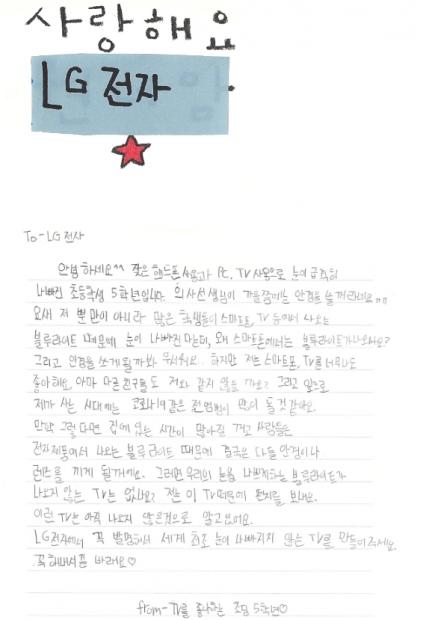 사랑해요
LG 전자
To-LG 전자
안녕하세요^^ 잦은 핸드폰 사용과 PC, TV 사용으로 눈이 급격히
나빠진 초등학생 5학년입니다. 의사선생님이 가을쯤에는 안경을 쓸꺼래네요ㅠㅠ
요새 저 뿐만이 아니라 많은 학생들이 스마트폰, TV 등에서 나오는
블루라이트 때문에 눈이 나빠진다는데, 왜 스마트폰에서는 블루라이트가 나오나요?
그리고 안경을 쓰게 될까봐 무서워요. 하지만 저는 스마트폰, TV를 너무나도
좋아해요. 아마 다른 친구들도 저와 같지 않을까요? 그리고 앞으로
제가 사는 시대에는 코로나19같은 전염병이 많이 돌것 같아요.
만약 그렇다면 집에 있는 시간이 많아질 꺼고 사람들은
전자제품에서 나오는 블루라이트 때문에 결국은 다들 안경이나
렌즈를 끼게 될꺼에요. 그러면 우리의 눈을 나빠지게하는 블루라이트가
나오지 않는 TV는 없나요? 저는 이 TV때문에 편지를 보내요.
이런 TV는 아직 나오지 않은것으로 알고 있어요.
LG전자에서 꼭 발명해서 세계 최초 눈이 나빠지지 않는 TV를 만들어주세요.
꼭 해내시길 바래요♡
from-TV를 좋아하는 초딩 5학년♡